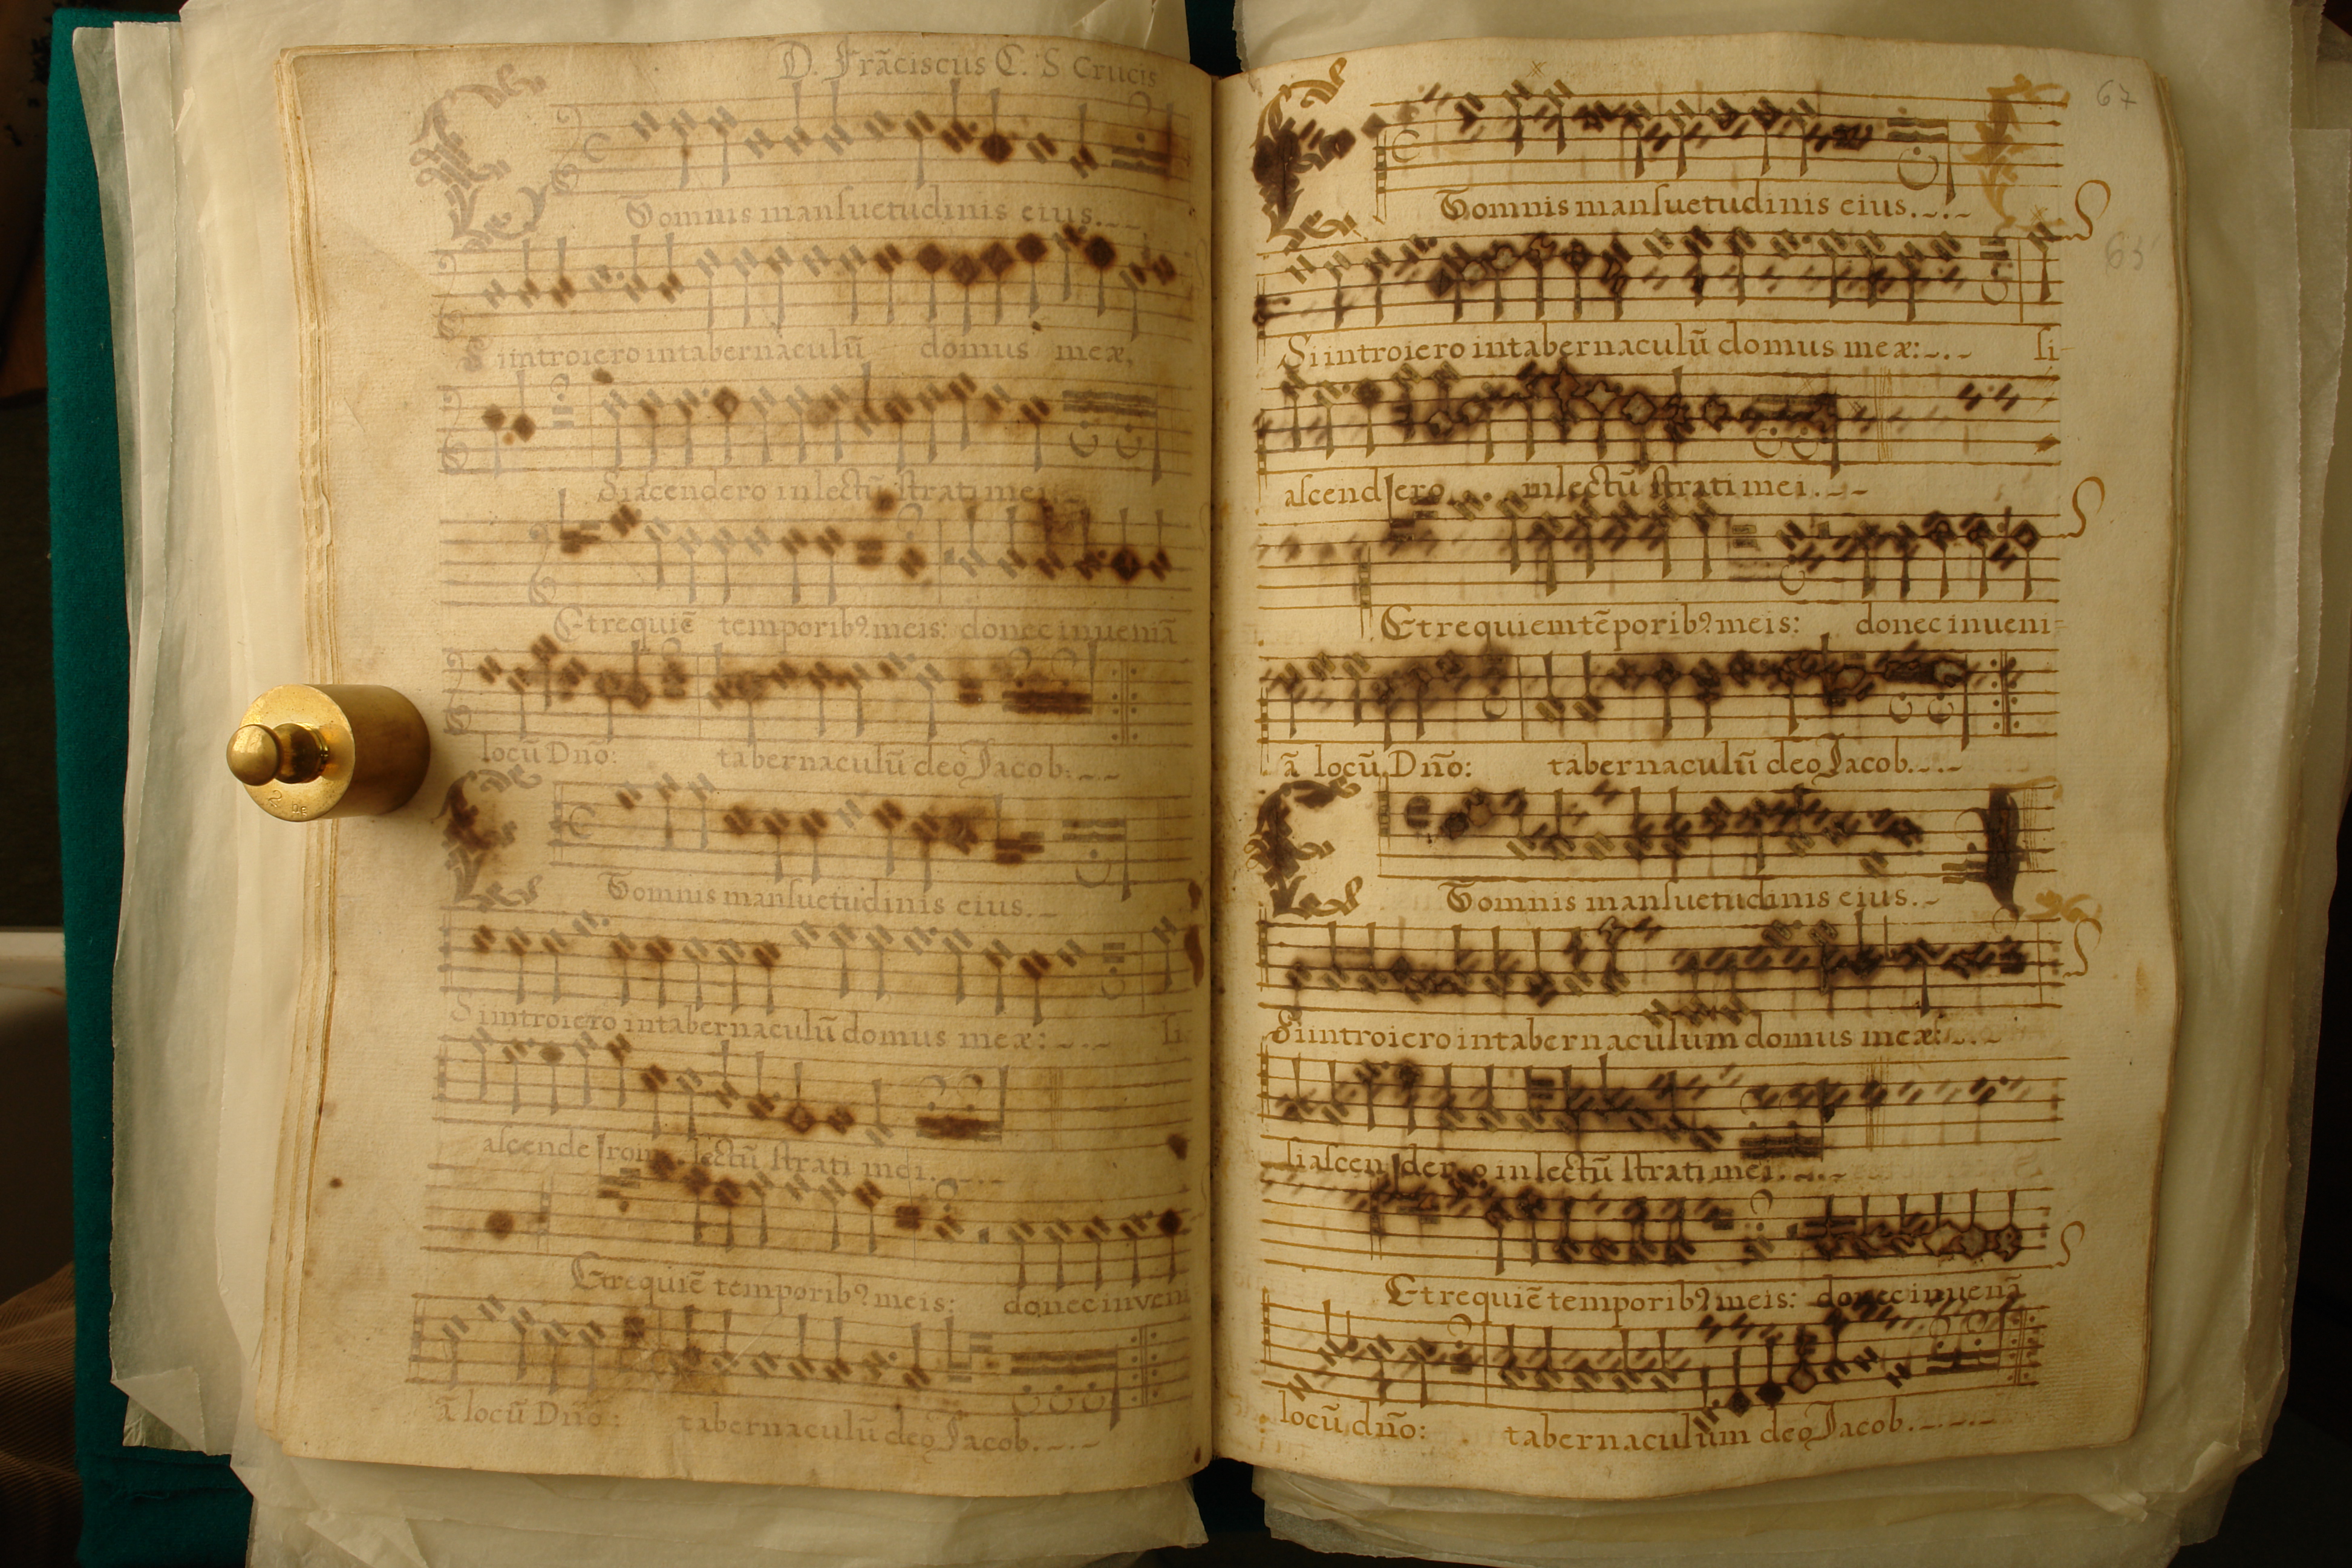 D. Frãciscus C. S Crucis
Et omnis mansuetudinis eius.
Si introiero in tabernaculũ domus meæ,
Si acendero in lectũ strati mei.
Et requiẽ temporibꝰ meis: donec inueniã
locũ Dnõ: tabernaculũ deo Jacob.
Et omnis mansuetudinis eius.
Si introiero in tabernaculũ domus meæ: si
ascendero in lectũ strati mei.
Et requiẽ temporibꝰ meis: donec inveni
ã locũ Dnõ: tabernaculũ deo Jacob.
67
Et omnis mansuetudinis eius.
63
Si introiero in tabernaculũ domus meæ: si
ascendero in lectũ strati mei.
Et requiem tẽporibꝰ meis: donec inueni
ã locũ Dnõ: tabernaculũ deo Jacob.
Et omnis mansuetudinis eius.
Si introiero in tabernaculum domus meæ:
si ascendero in lectũ strati mei.
Et requiẽ temporibꝰ meis: donec inueniã
locũ dnõ: tabernaculum deo Jacob.